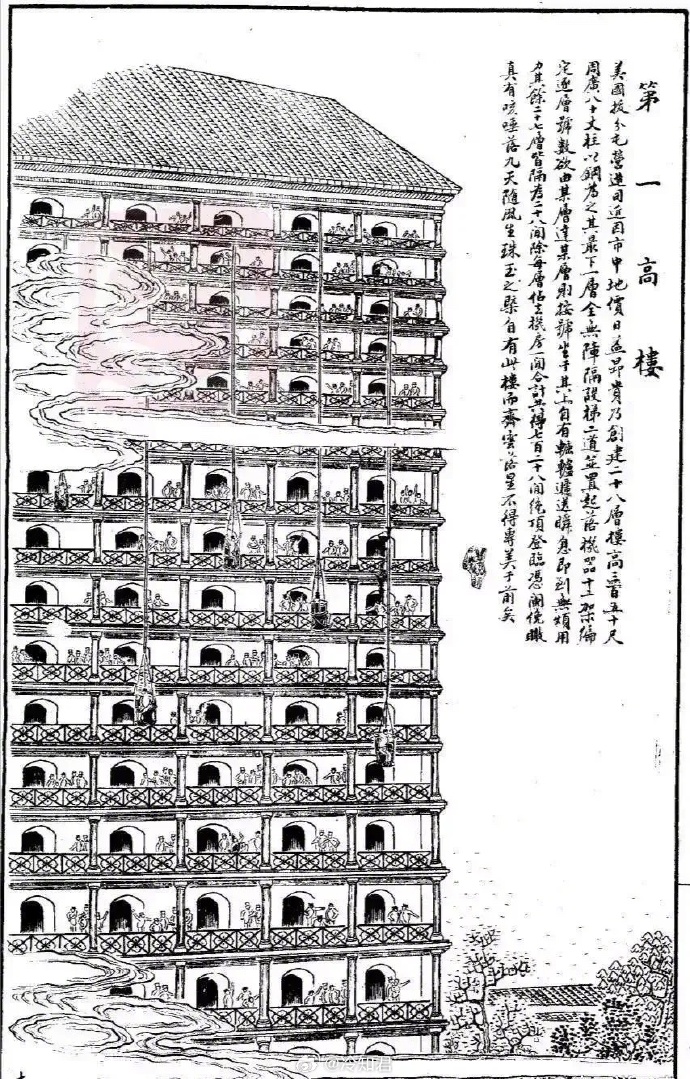 第一高樓
美國拔分毛營造司近因市中地價日益昂貴乃創建二十八層樓高三百五十尺
周廣八十丈柱以鋼為之其最下一層全無障隔設梯二道並置起落機器十二架編
定逐層號數欲由某層達某層則按號坐于其上自有轆轤遞送瞬息即到無煩用
力其餘二十七層皆隔為二十八間除每層佔去機房一間合計共得七百二十八間絕頂登臨憑闌俛瞰
真有咳唾落九天隨風生珠玉之槩自有此樓而齊雲落星不得專美于前矣
@冷知君